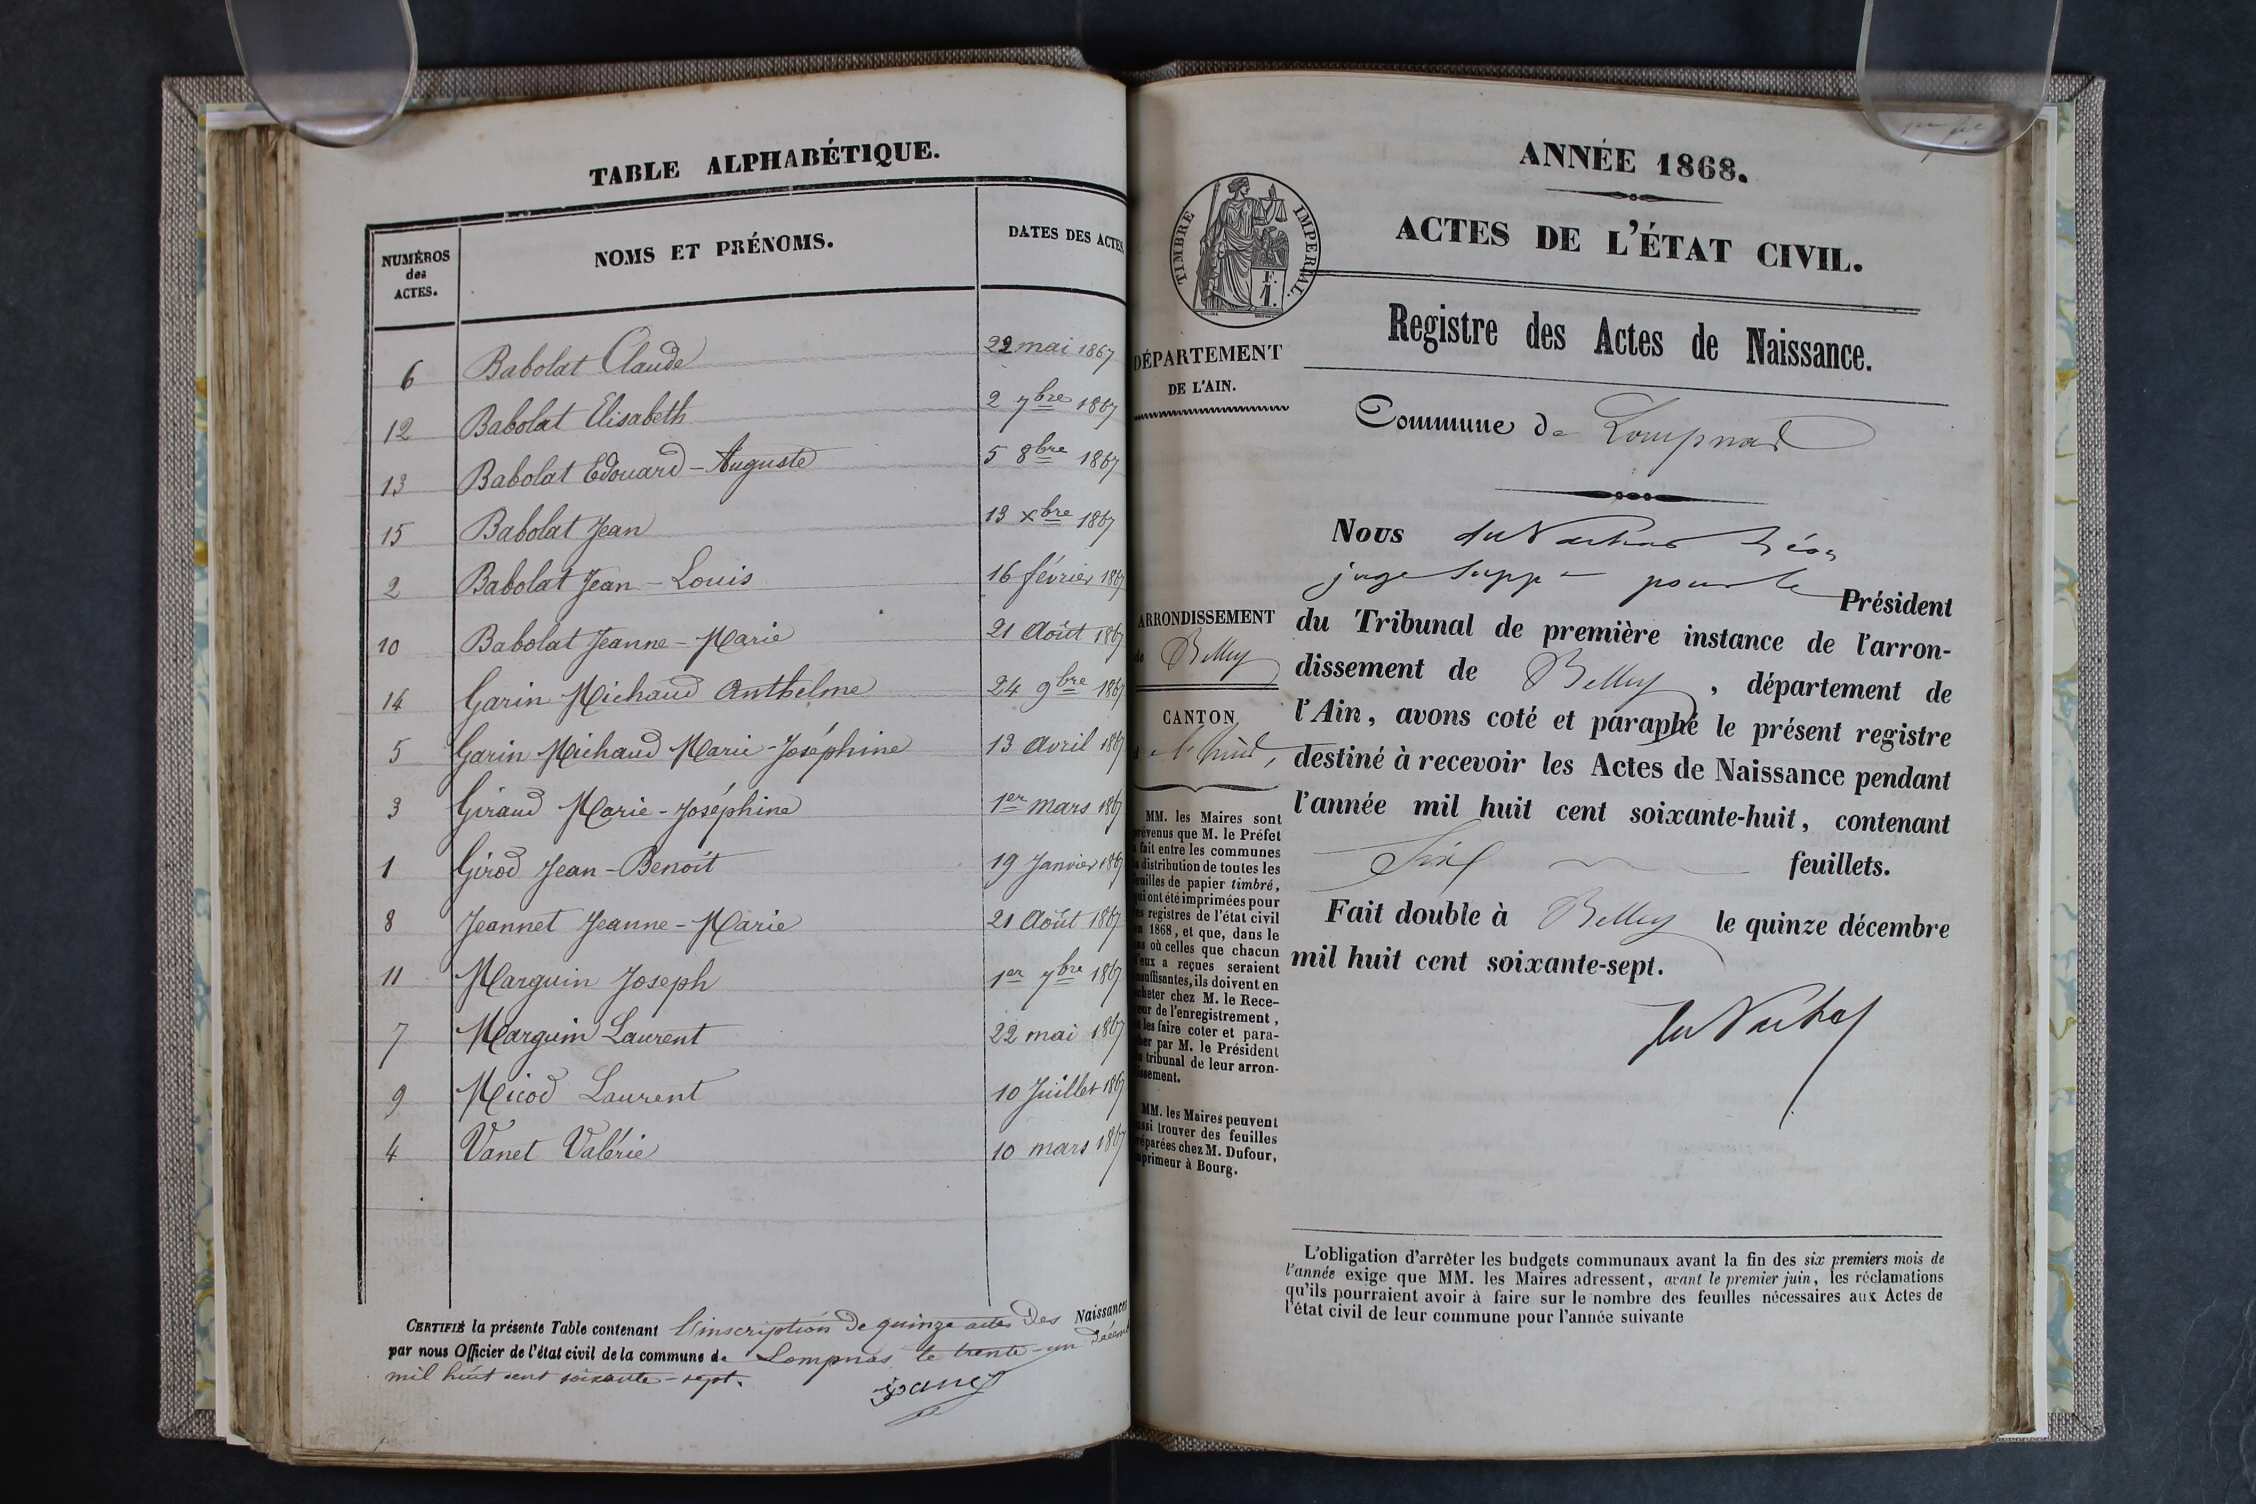 TABLE ALPHABÉTIQUE.
NUMÉROS des ACTES.
NOMS ET PRÉNOMS.
DATES DES ACTES
6 Babolat Claude 22 mai 1867
12 Babolat Elisabeth 2 7bre 1867
13 Babolat Edouard-Auguste 5 8bre 1867
15 Babolat Jean 13 xbre 1867
2 Babolat Jean-Louis 16 février 1867
10 Babolat Jeanne-Marie 21 Août 1867
14 Garin Michaud Anthelme 24 9bre 1867
5 Garin Michaud Marie-Joséphine 13 avril 1867
3 Giraud Marie-Joséphine 1er mars 1867
1 Girod Jean-Benoit 19 Janvier 1867
8 Jeannet Jeanne-Marie 21 Août 1867
11 Marguin Joseph 1er 7bre 1867
7 Marguin Laurent 22 mai 1867
9 Micod Laurent 10 Juillet 1867
4 Vanet Valérie 10 mars 1867
CERTIFIÉ la présente Table contenant l'inscription de quinze actes des Naissances
par nous Officier de l'état civil de la commune de Lompnas le trente-un décemb
mil huit cent soixante-sept.
ANNÉE 1868.
ACTES DE L'ÉTAT CIVIL.
TIMBRE IMPERIAL.
F.
1.
Registre des Actes de Naissance.
DÉPARTEMENT
DE L'AIN.
Commune de Lompnas
Nous
juge supp pour le Président
du Tribunal de première instance de l'arron-
dissement de Belley, département de
l'Ain, avons coté et paraphé le présent registre
destiné à recevoir les Actes de Naissance pendant
l'année mil huit cent soixante-huit, contenant
Six feuillets.
Fait double à Belley le quinze décembre
mil huit cent soixante-sept.
ARRONDISSEMENT
de Belley
CANTON
MM. les Maires sont
prévenus que M. le Préfet
a fait entre les communes
la distribution de toutes les
feuilles de papier timbré,
qui ont été imprimées pour
les registres de l'état civil
en 1868, et que, dans le
cas où celles que chacun
d'eux a reçues seraient
insuffisantes, ils doivent en
acheter chez M. le Rece-
veur de l'enregistrement,
et les faire coter et para-
pher par M. le Président
du tribunal de leur arron-
dissement.
MM. les Maires peuvent
aussi trouver des feuilles
préparées chez M. Dufour,
imprimeur à Bourg.
L'obligation d'arrêter les budgets communaux avant la fin des six premiers mois de
l'année exige que MM. les Maires adressent, avant le premier juin, les réclamations
qu'ils pourraient avoir à faire sur le nombre des feuilles nécessaires aux Actes de
l'état civil de leur commune pour l'année suivante